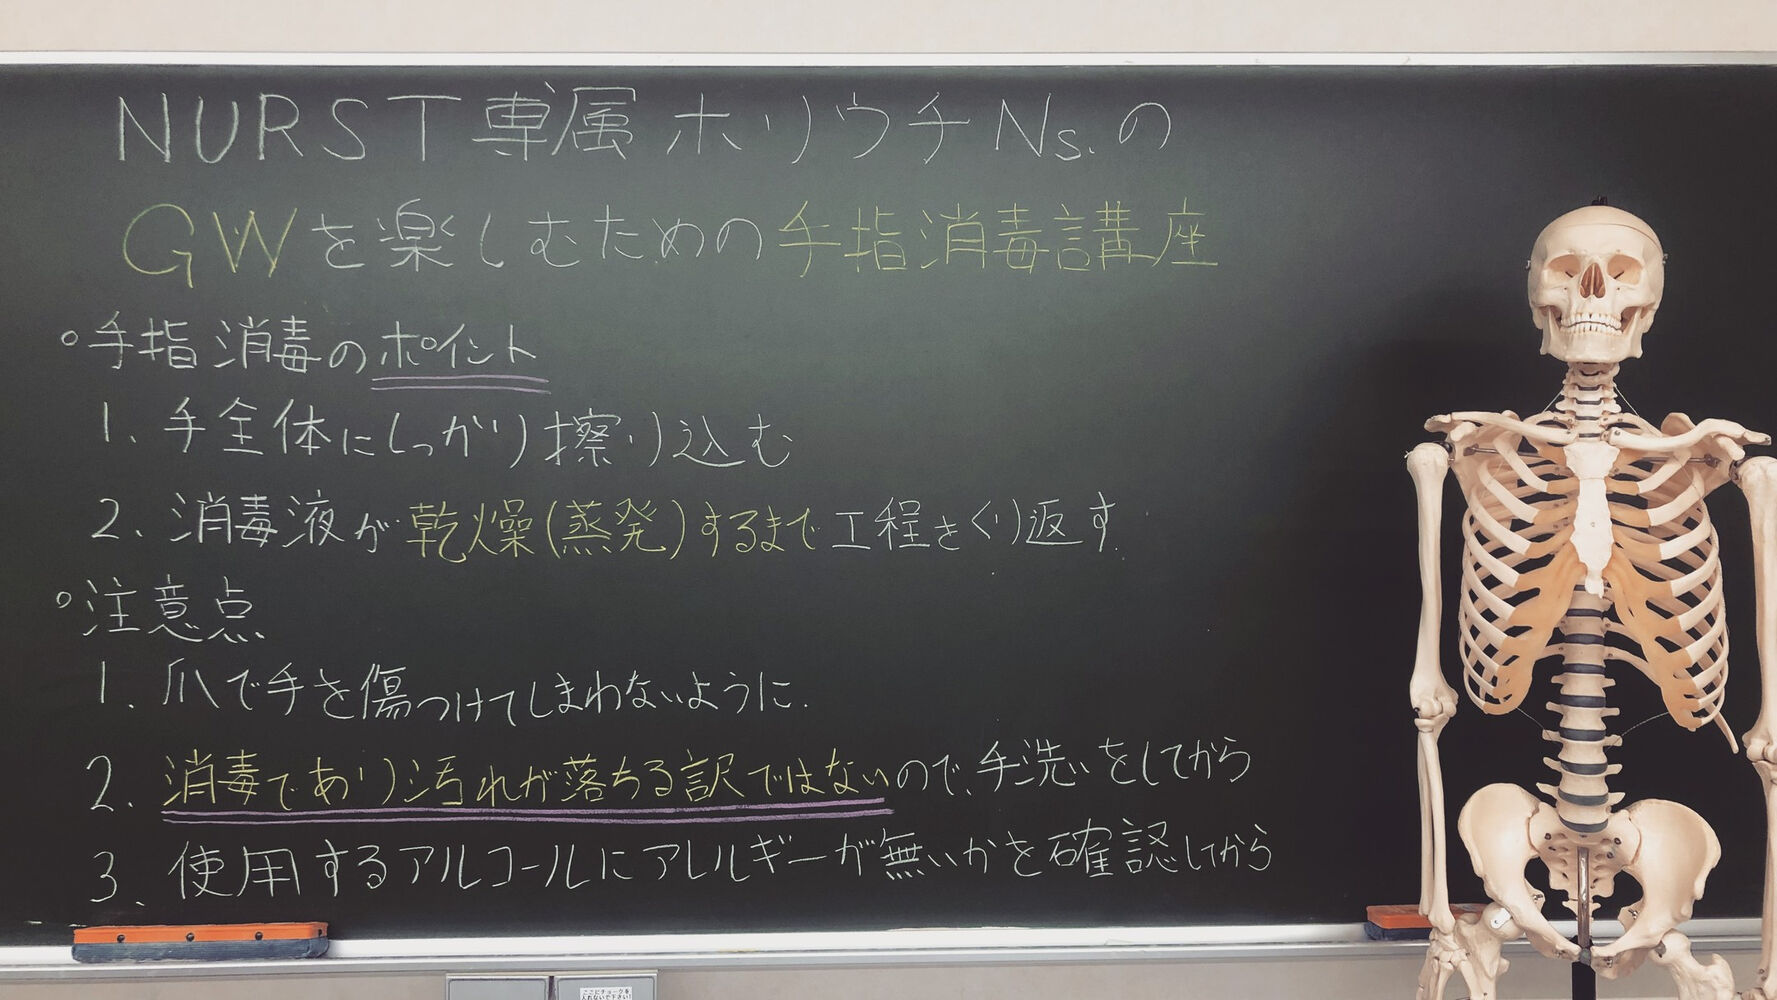 NURST専属 ホリウチNs.の
GWを楽しむための手指消毒講座
○手指消毒のポイント
1. 手全体にしっかり擦り込む
2. 消毒液が乾燥(蒸発)するまで工程をくり返す.
○注意点
1. 爪で手を傷つけてしまわないように.
2. 消毒であり汚れが落ちる訳ではないので、手洗いをしてから
3. 使用するアルコールにアレルギーが無いかを確認してから
ここにチョークを
入れないで下さい!